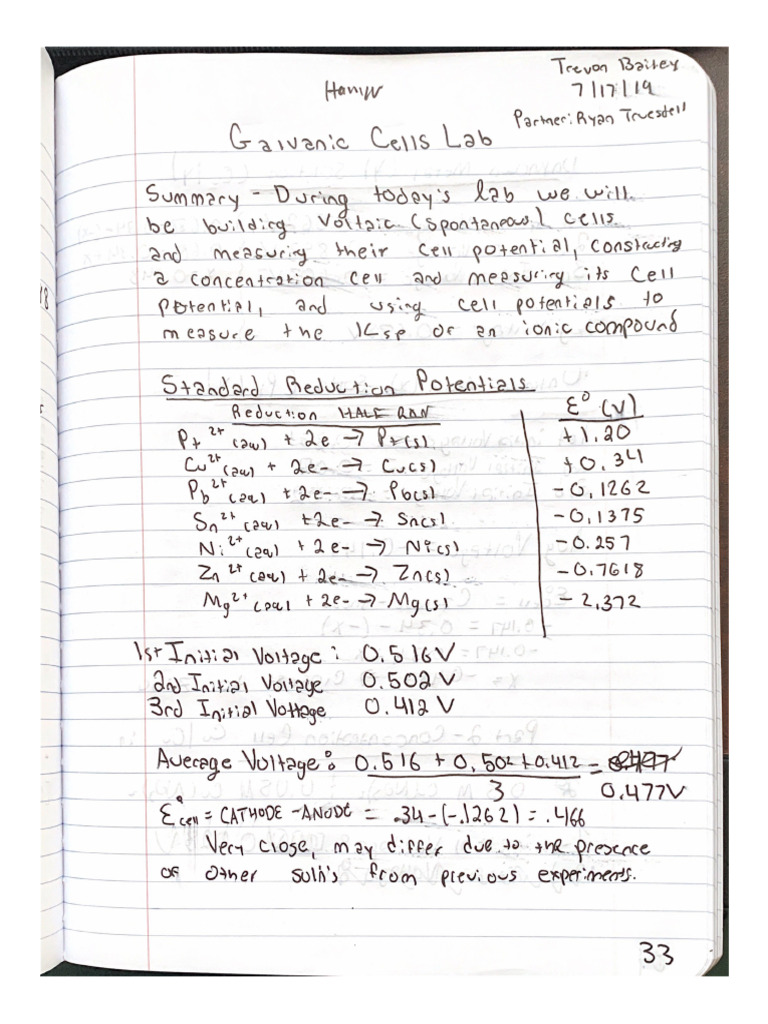 Trevon Bailey
HamW
7/17/19
Partner: Ryan Truesdell
Galvanic Cells Lab
Summary - During today's lab we will
be building Voltaic (spontaneous) cells
and measuring their cell potential, constructing
a concentration cell and measuring its cell
potential, and using cell potentials to
measure the Ksp of an ionic compound
Standard Reduction Potentials
Reduction HALF RXN ℰ° (V)
Pt²⁺(aq) + 2e- → Pt(s) +1.20
Cu²⁺(aq) + 2e- → Cu(s) +0.34
Pb²⁺(aq) + 2e- → Pb(s) -0.1262
Sn²⁺(aq) +2e- → Sn(s) -0.1375
Ni²⁺(aq) + 2e- → Ni(s) -0.257
Zn²⁺(aq) + 2e- → Zn(s) -0.7618
Mg²⁺(aq) + 2e- → Mg(s) -2.372
1st Initial Voltage: 0.516V
2nd Initial Voltage 0.502V
3rd Initial Voltage 0.412V
Average Voltage: 0.516 + 0.502 + 0.412 =
3 0.477V
ℰ°cell = CATHODE - ANODE = .34-(-.1262) = .466
Very close, may differ due to the presence
of other soln's from previous experiments.
33